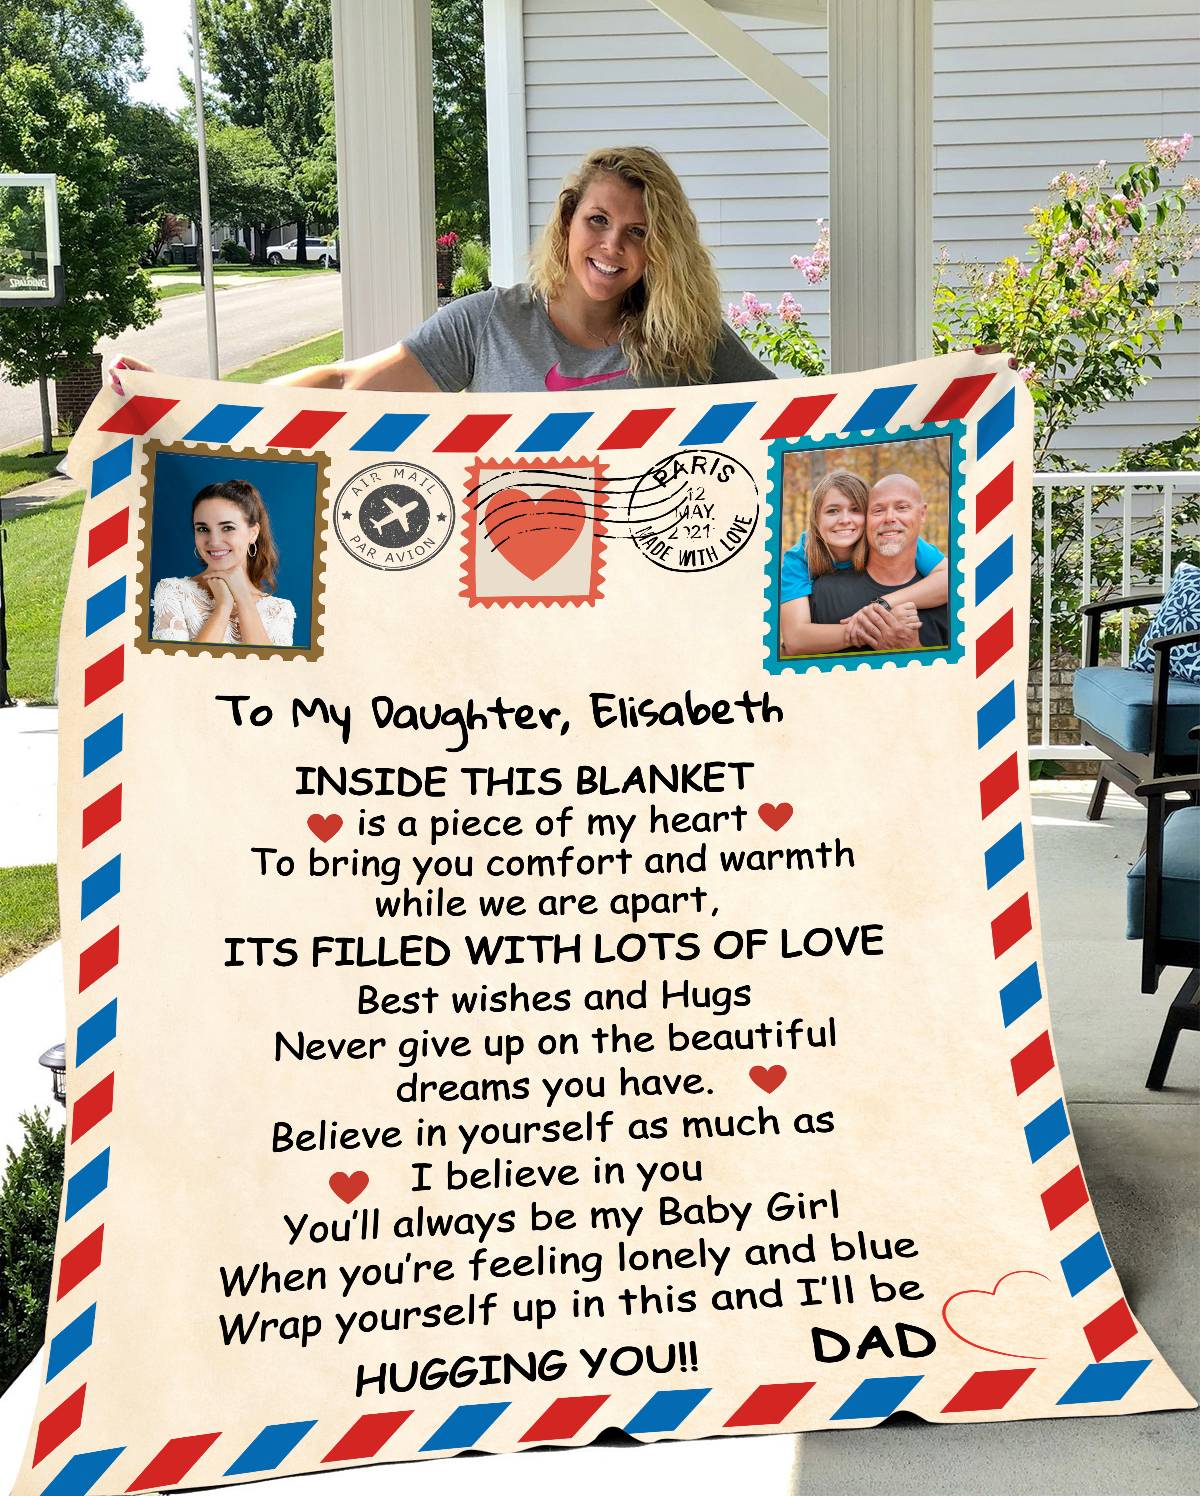 SPALDING
AIR MAIL
PAR AVION
PARIS
12
MAY
2021
MADE WITH LOVE
To My Daughter, Elisabeth
INSIDE THIS BLANKET
is a piece of my heart
To bring you comfort and warmth
while we are apart,
ITS FILLED WITH LOTS OF LOVE
Best wishes and Hugs
Never give up on the beautiful
dreams you have.
Believe in yourself as much as
I believe in you
You'll always be my Baby Girl
When you're feeling lonely and blue
Wrap yourself up in this and I'll be
HUGGING YOU!!
DAD